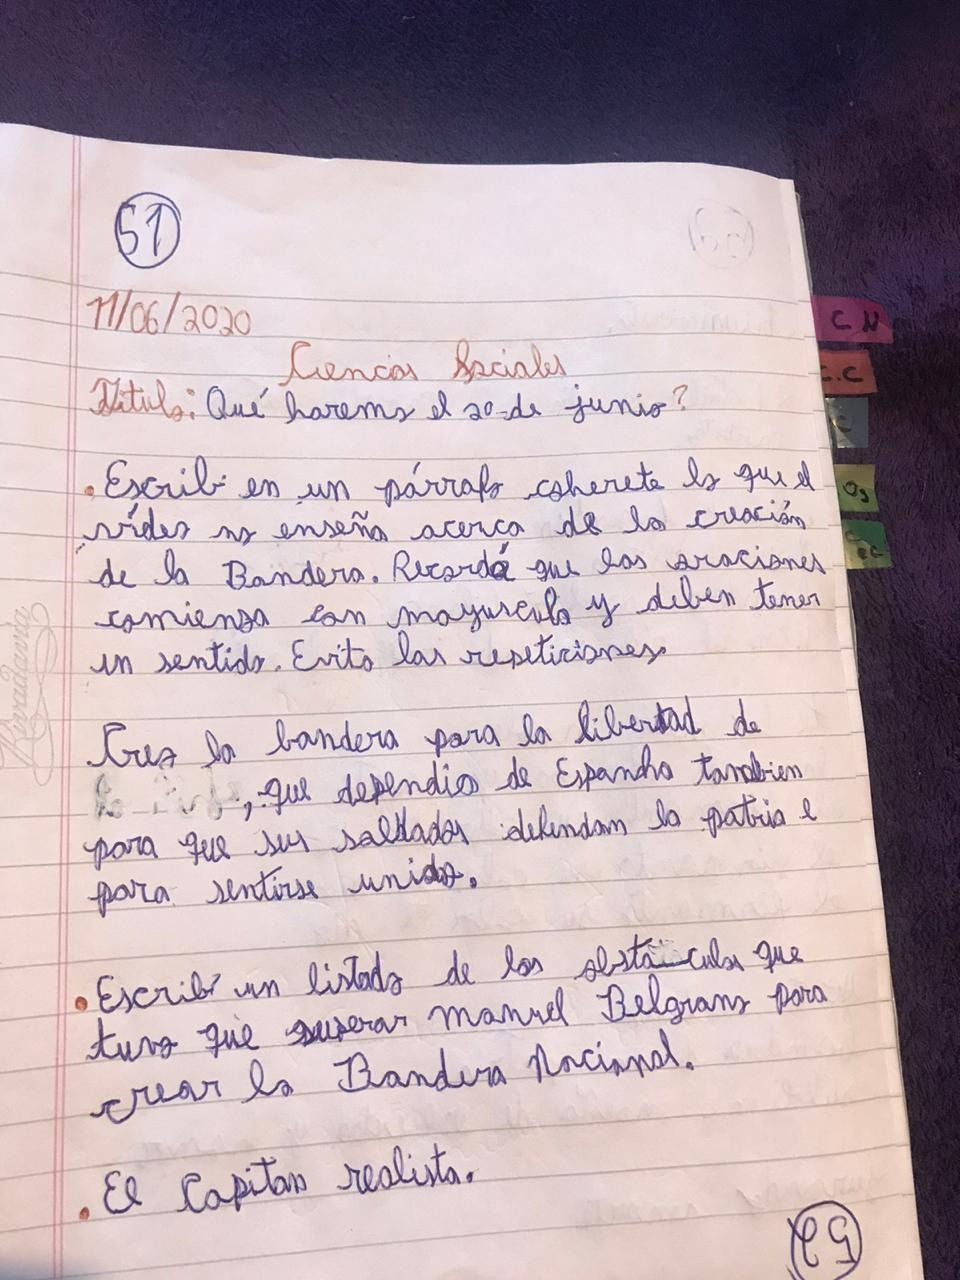 51
11/06/2020
Ciencias Sociales
Título: Qué haremos el 20 de junio?
. Escribí en un párrafo coherete lo que el
video nos enseña acerca de la creación
de la Bandera. Recordá que las oraciones
comienza con mayuscula y deben tener
un sentido. Evita las repeticiones
Creo la bandera para la libertad de
, que dependio de Espanha tambien
para que sus saldados defendam la patria e
para sentirse unidos.
. Escribí un listado de los obstáculos que
tuvo que superar manuel Belgrano para
crear la Bandera Nacional.
. El Capitan realista.
52
C N
C.C
Rivadavia